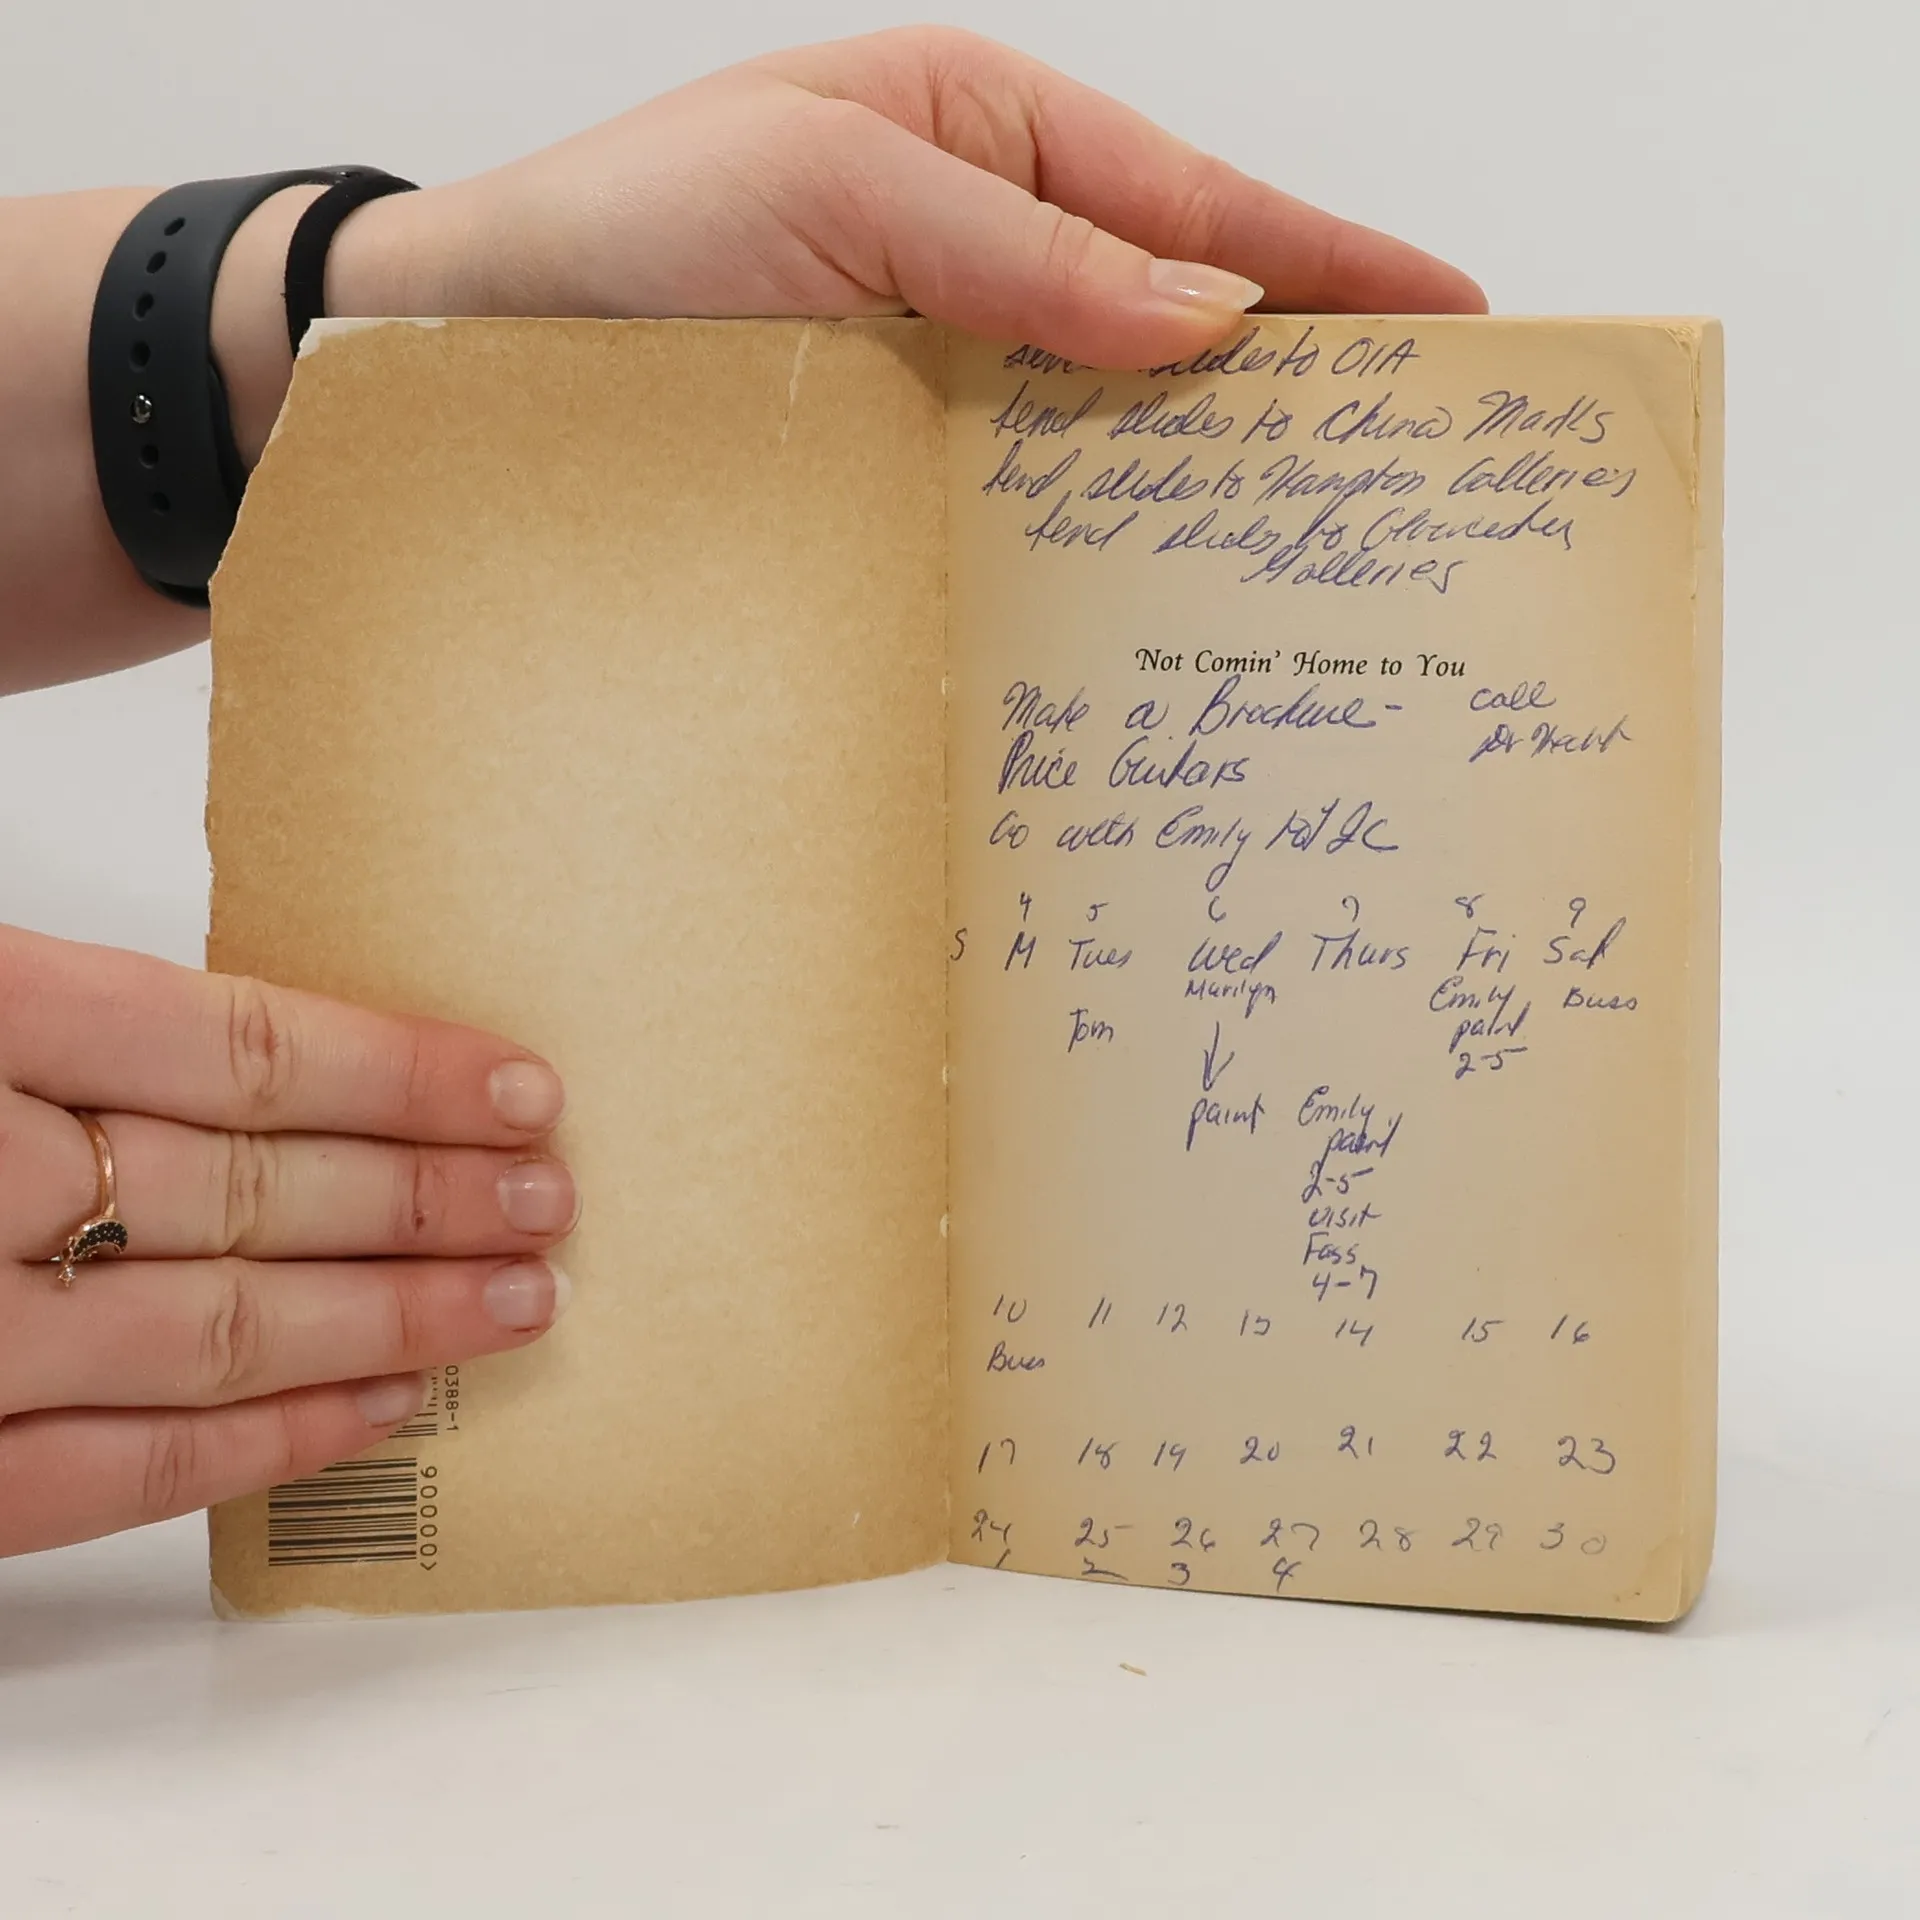 slides to OIA
Send slides to China Marks
Send slides to Hampton Galleries
Send slides to Gloucester
Galleries
Not Comin' Home to You
Make a Brochure -
call
Dr
Price Guitars
Go with Emily to
4 5 6 7 8 9
S M Tues Wed Thurs Fri Sat
Marilyn Emily Buss
Tom paint
2-5
paint Emily
paint
2-5
visit
Fass
4-7
10 11 12 13 14 15 16
Buss
17 18 19 20 21 22 23
24 25 26 27 28 29 30
1 2 3 4
0388-1
90000>